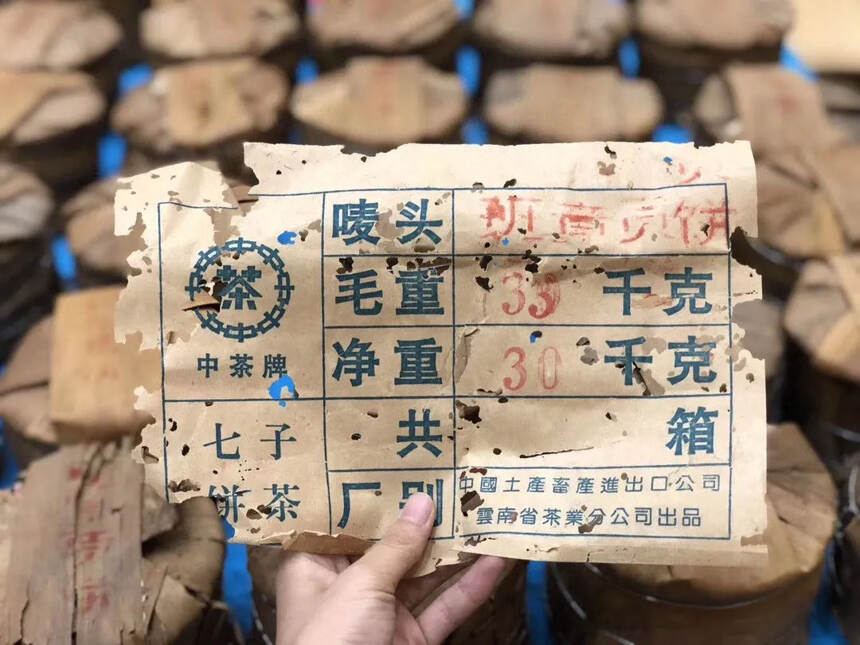 茶
中茶牌
七子
饼茶
唛头 班章饼
毛重 33 千克
净重 30 千克
共 箱
厂别 中國土產畜產進出口公司
雲南省茶業分公司出品